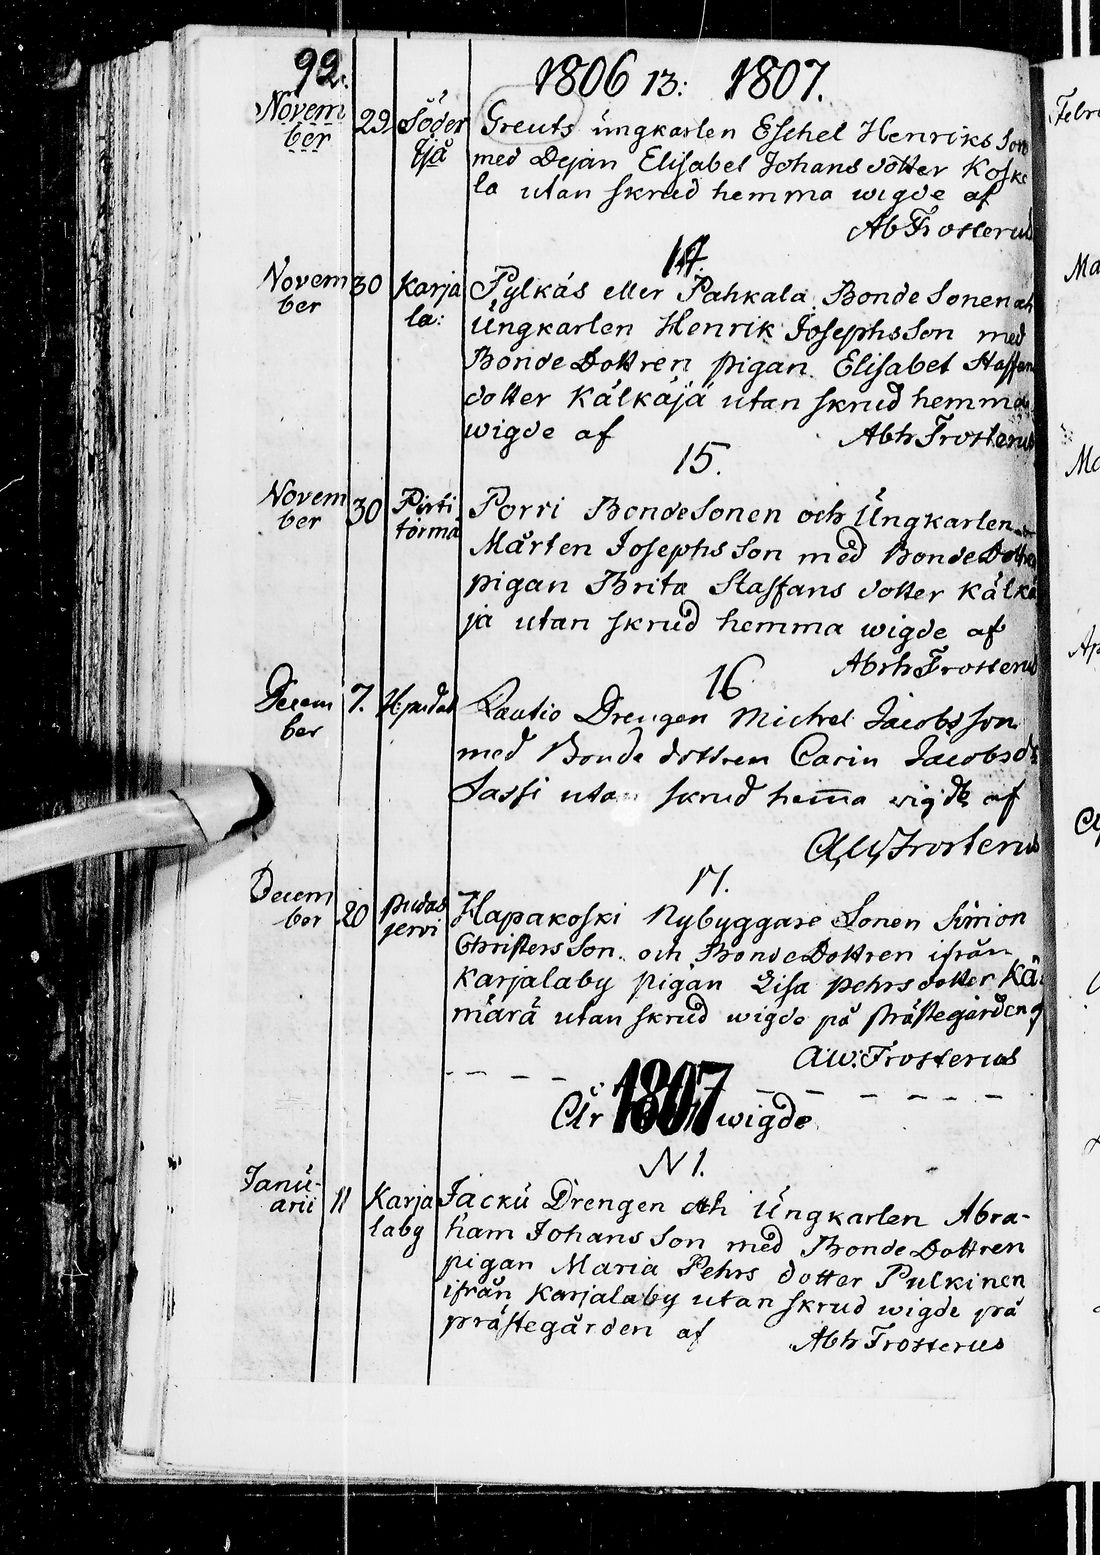 92.
1806 13: 1807.
Novem
ber 29 Söder
sjä
Greuts ungkarlen Eschel Henriks Son
med Dejan Elisabet Johans dotter Koske
la utan skrud hemma wigde af
Ab Frosterus
14.
Novem
ber 30 Karja
la:
Pylkäs eller Pahkala Bonde Sonen och
Ungkarlen Henrik Josephs Son med
Bonde Dottren pigan Elisabet Staffans
dotter Kälkäjä utan skrud hemma
wigde af Abh Frosterus
15.
Novem
ber 30 Pirti
törmä
Porri Bonde Sonen och Ungkarlen
Mårten Josephs Son med Bonde Dottren
pigan Brita Staffans dotter Kälkä
jä utan skrud hemma wigde af
Abrh Frosterus
16
Decem
ber 7. H:pudas
Lautio Drengen Michel Jacobs Son
med Bonde dottren Carin Jacobs dr
Sassi utan skrud hem̄a wigde af
A.W. Frosterus
17.
Decem
ber 20 pudas
jervi
Hapakoski Nybyggare Sonen Simon
Christers Son och Bonde Dottren ifrån
Karjalaby pigan Lisa Pehrs dotter Kä
märä utan skrud wigde på prästegården af
A.W. Frosterus
År 1807 wigde
N 1.
Janu-
arii 11 Karja
laby
Jacku Drengen och Ungkarlen Abra-
ham Johans Son med Bonde Dottren
pigan Maria Pehrs dotter Pulkinen
ifrån Karjalaby utan skrud wigde på
prästegården af Abh Frosterus
Febru
Ma
Ma
Ap